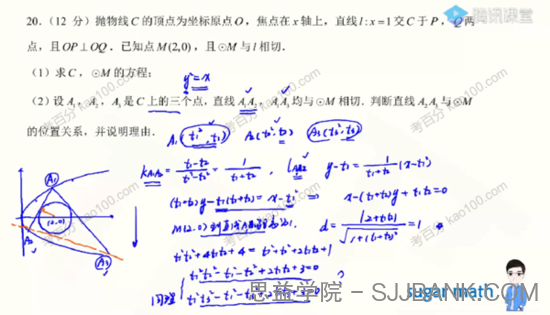 腾讯课堂
20.(12 分) 抛物线 C 的顶点为坐标原点 O,焦点在 x 轴上,直线 l : x = 1 交 C 于 P,Q 两
点,且 OP⊥OQ. 已知点 M(2,0),且 ⊙M 与 l 相切.
(1) 求 C,⊙M 的方程;
y²=x
(2) 设 A₁,A₂,A₃ 是 C 上的三个点,直线 A₁A₂,A₁A₃ 均与 ⊙M 相切. 判断直线 A₂A₃ 与 ⊙M
的位置关系,并说明理由.
A₁(t₁²,t₁) A₂(t₂²,t₂) A₃(t₃²,t₃)
kA₁A₂ = t₁-t₂ / t₁²-t₂² = 1 / t₁+t₂ , lA₁A₂ y-t₁= 1/t₁+t₂ (x-t₁²)
(t₁+t₂)y-t₁(t₁+t₂)=x-t₁² x-(t₁+t₂)y+t₁t₂=0
d= |2+t₁t₂| / √1+(t₁+t₂)² =1
t₁²t₂²+4t₁t₂+4 = t₁²+t₂²+2t₁t₂+1
t₁²t₂²-t₁²-t₂²+2t₁t₂+3=0
同理
A₁
(2,0)
A₂
A₃
考百分 kao100.com
思益学院 - SJJPANK.COM
sugar math